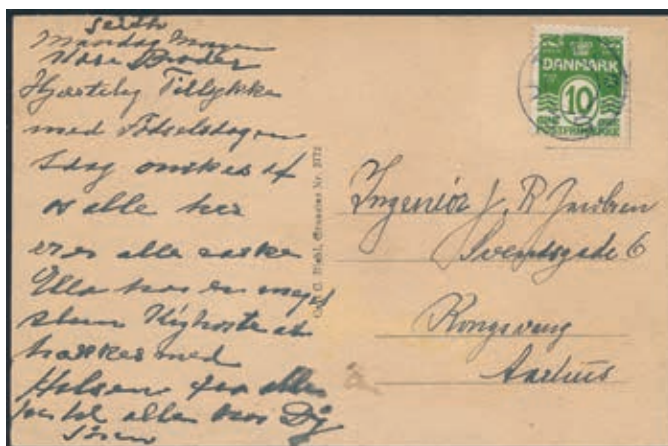 Mandag Morgen
Kære Broder
Hjertelig Tillykke
med Fødselsdagen
Idag ønskes af
os alle her
er alle raske
Ella har en meget
slem Kighoste at
trækkes med
Hilsen fra alle
til alle hos Dig
Søren
DANMARK
10
ØRE ØRE
POSTFRIMÆRKE
Ingeniør J. R Jacobsen
Svendsgade 6
Kongsvang
Aarhus
Nr. 3172